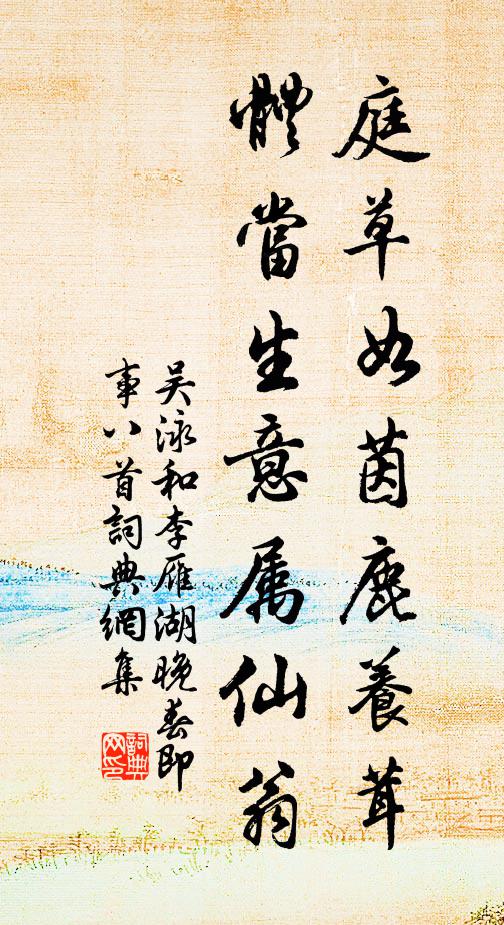 庭草如茵鹿養茸
體當生意属仙翁
吴泳和李雁湖晚春即
事八首詞典網集
詞典网印